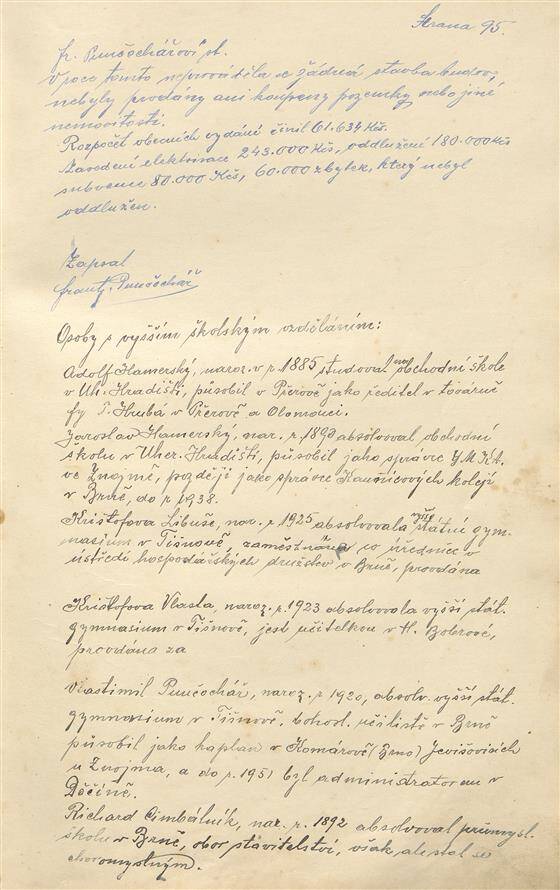 Strana 95.
fr. Punčochářovi st.
V roce tomto neprováděla se žádná stavba budov,
nebyly prodány ani koupeny pozemky nebo jiné
nemovitosti.
Rozpočet obecních vydání činil 61.634 Kčs.
Zavedení elektrisace 243.000 Kčs, oddlužení 180.000 Kčs
subvence 80.000 Kčs, 60.000 zbytek, který nebyl
oddlužen.
Zapsal
frant. Punčochář
Osoby s vyšším školským vzděláním:
Adolf Hamerský, naroz. v r. 1885 studoval na obchodní škole
v Uh. Hradišti, působil v Přerově jako ředitel v továrně
fy Hrubá v Přerově a Olomouci.
Jaroslav Hamerský, nar. r. 1890 absolvoval obchodní
školu v Uher. Hradišti, působil jako správce Y.M.K.A.
ve Znojmě, později jako správce Kaunicových kolejí
v Brně, do r. 1938.
Krištofova Libuše, nar. r. 1925 absolvovala vyšší státní gym-
nasium v Tišnově, zaměstnána co úřednice v
ústředí hospodářských družstev v Brně, provdána
Krištofova Vlasta, naroz. r. 1923 absolvovala vyšší stát.
gymnasium v Tišnově, jest učitelkou v H. Bobrové,
provdána za
Vlastimil Punčochář, naroz. r. 1920, absolv. vyšší stát.
gymnasium v Tišnově, bohosl. učiliště v Brně
působil jako kaplan v Komárově (Brno) Jevišovicích
u Znojma, a do r. 1951 byl administratorem v
Děčíně.
Richard Cimbálník, nar. r. 1892 absolvoval průmysl.
školu v Brně, obor stavitelství, však ale stal se
choromyslným.